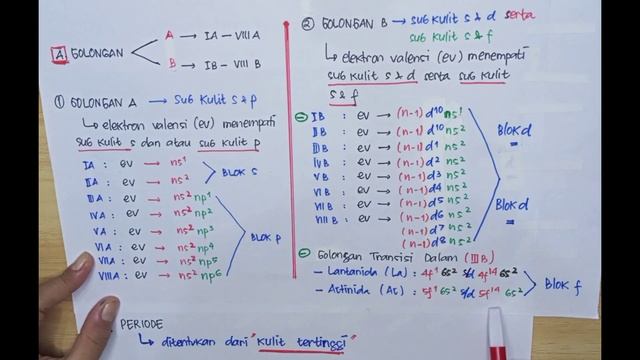 A GOLONGAN
A → IA – VIII A
B → IB – VIII B
① GOLONGAN A → Sub Kulit s & p
↳ elektron valensi (ev) menempati
sub kulit s dan atau sub kulit p
IA : ev → ns¹
IIA : ev → ns²
Blok s
IIIA : ev → ns² np¹
IVA : ev → ns² np²
VA : ev → ns² np³
VIA : ev → ns² np⁴
VIIA : ev → ns² np⁵
VIIIA : ev → ns² np⁶
Blok p
② GOLONGAN B → sub kulit s & d serta
sub kulit s & f
↳ elektron valensi (ev) menempati
sub kulit s & d serta sub kulit
s & f
IB : ev → (n-1) d¹⁰ ns¹
IIB : ev → (n-1) d¹⁰ ns²
IIIB : ev → (n-1) d¹ ns²
IVB : ev → (n-1) d² ns²
VB : ev → (n-1) d³ ns²
VIB : ev → (n-1) d⁴ ns²
VIIB : ev → (n-1) d⁵ ns²
VIIIB : ev → (n-1) d⁶ ns²
(n-1) d⁷ ns²
(n-1) d⁸ ns²
Blok d
Blok d
Golongan Transisi Dalam (IIIB)
– Lantanida (La) : 4f¹ 6s² s/d 4f¹⁴ 6s²
– Aktinida (Ac) : 5f¹ 6s² s/d 5f¹⁴ 6s²
Blok f
PERIODE
↳ ditentukan dari "kulit tertinggi"